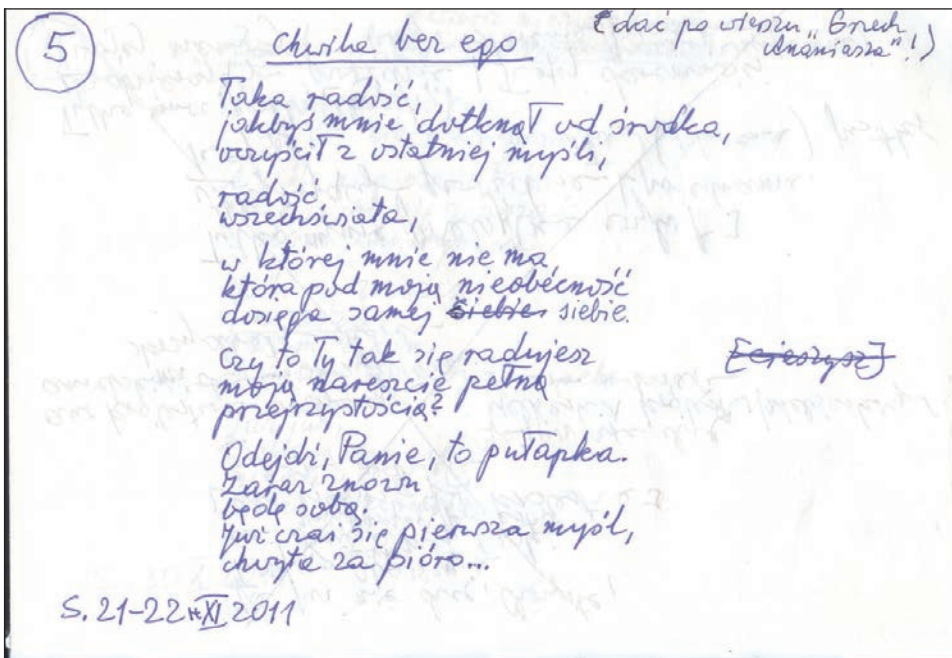 5
Chwila bez ego
(dać po wierszu "Grzech
Ananiasza"!)
Taka radość,
jakbyś mnie dotknął od środka,
oczyścił z ostatniej myśli,
radość
wszechświata,
w której mnie nie ma
która pod moją nieobecność
dosięga samej siebie siebie.
Czy to Ty tak się radujesz
[cieszysz]
moją nareszcie pełną
przejrzystością?
Odejdź, Panie, to pułapka.
Zaraz znowu
będę sobą.
Już czai się pierwsza myśl,
chwyta za pióro...
S. 21-22 XI 2011